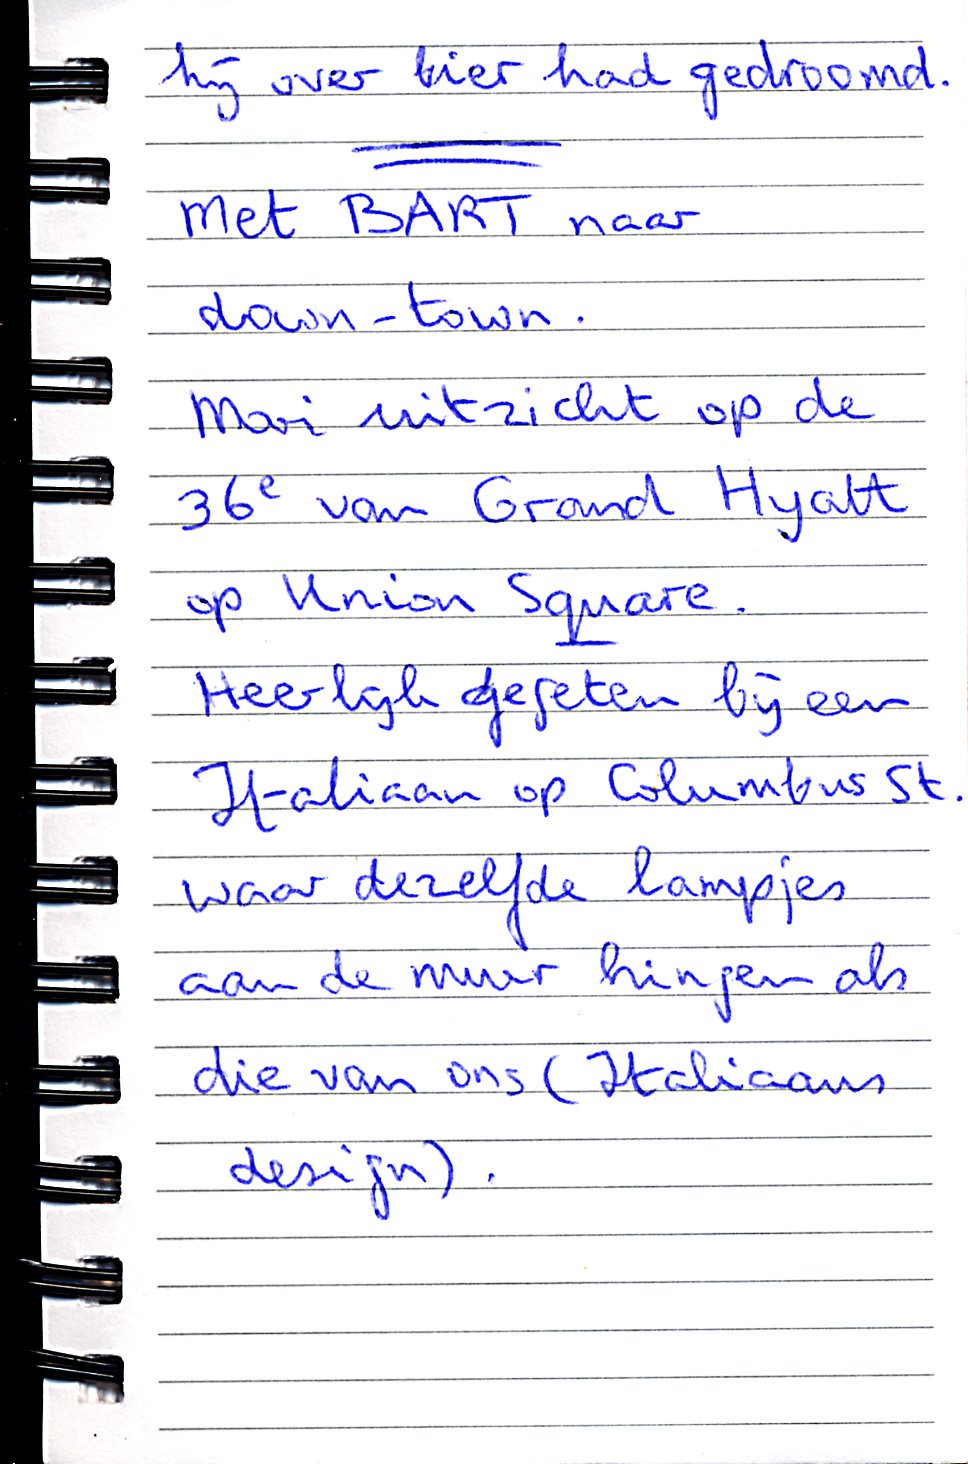 hij over bier had gedroomd.
Met BART naar
down-town.
Mooi uitzicht op de
36e van Grand Hyatt
op Union Square.
Heerlijk gegeten bij een
Italiaan op Columbus St.
waar dezelfde lampjes
aan de muur hingen als
die van ons (Italiaans
design).